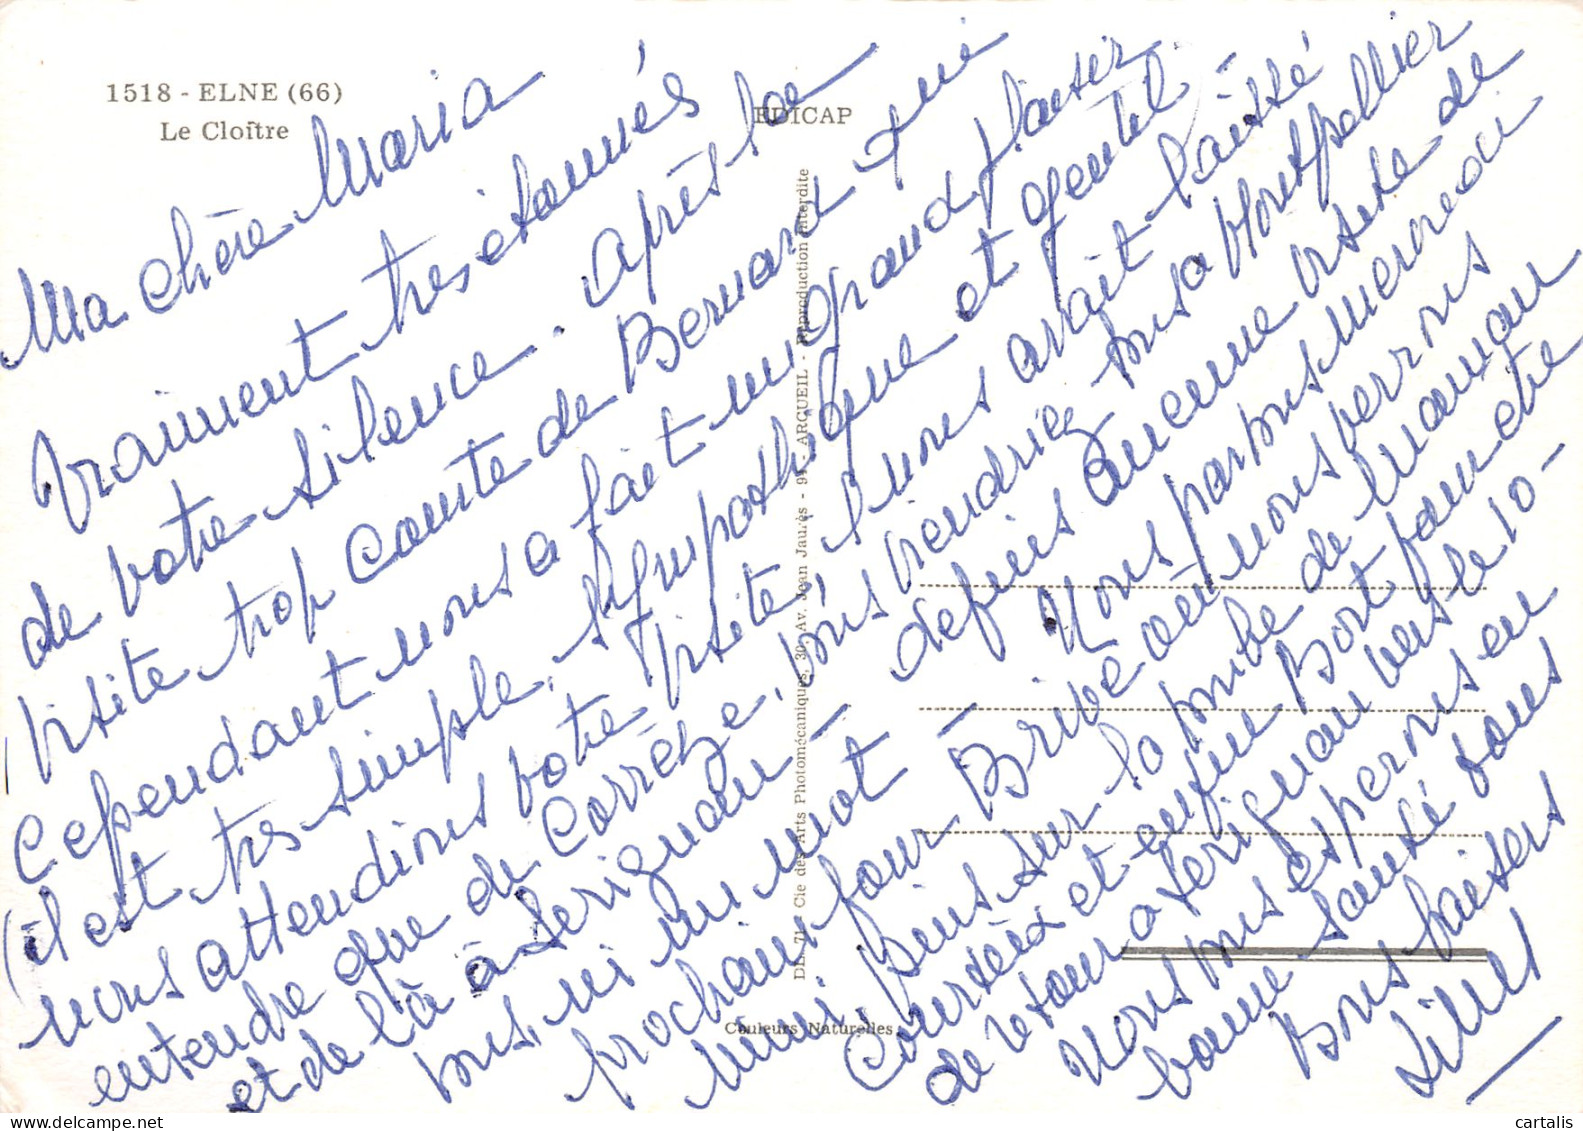 1518 - ELNE (66)
Le Cloître
EDICAP
Ma chère Maria
vraiment très étonnés
de votre silence. Après la
visite trop courte de Bernard qui
Cependant nous a fait un grand plaisir
(il est très simple, sympathique et gentil -
nous attendions votre visite, il nous avait laissé
entendre que de Corrèze, vous viendriez à Montpellier
et de là à Serignan - depuis aucune visite de
vous, ni un mot - Nous partons mercredi
prochain pour Brive où nous verrons
Mimi, puis sur la tombe de Maman
Courteix et enfin Bort pour être
de retour à Serignan vers le 10 -
Nous vous espérons en
bonne santé tous
Bons baisers
DL 71 Cie des Arts Photomécaniques, 30, Av. Jean Jaurès - 94 - ARCUEIL - Reproduction interdite
Couleurs Naturelles
cartalis